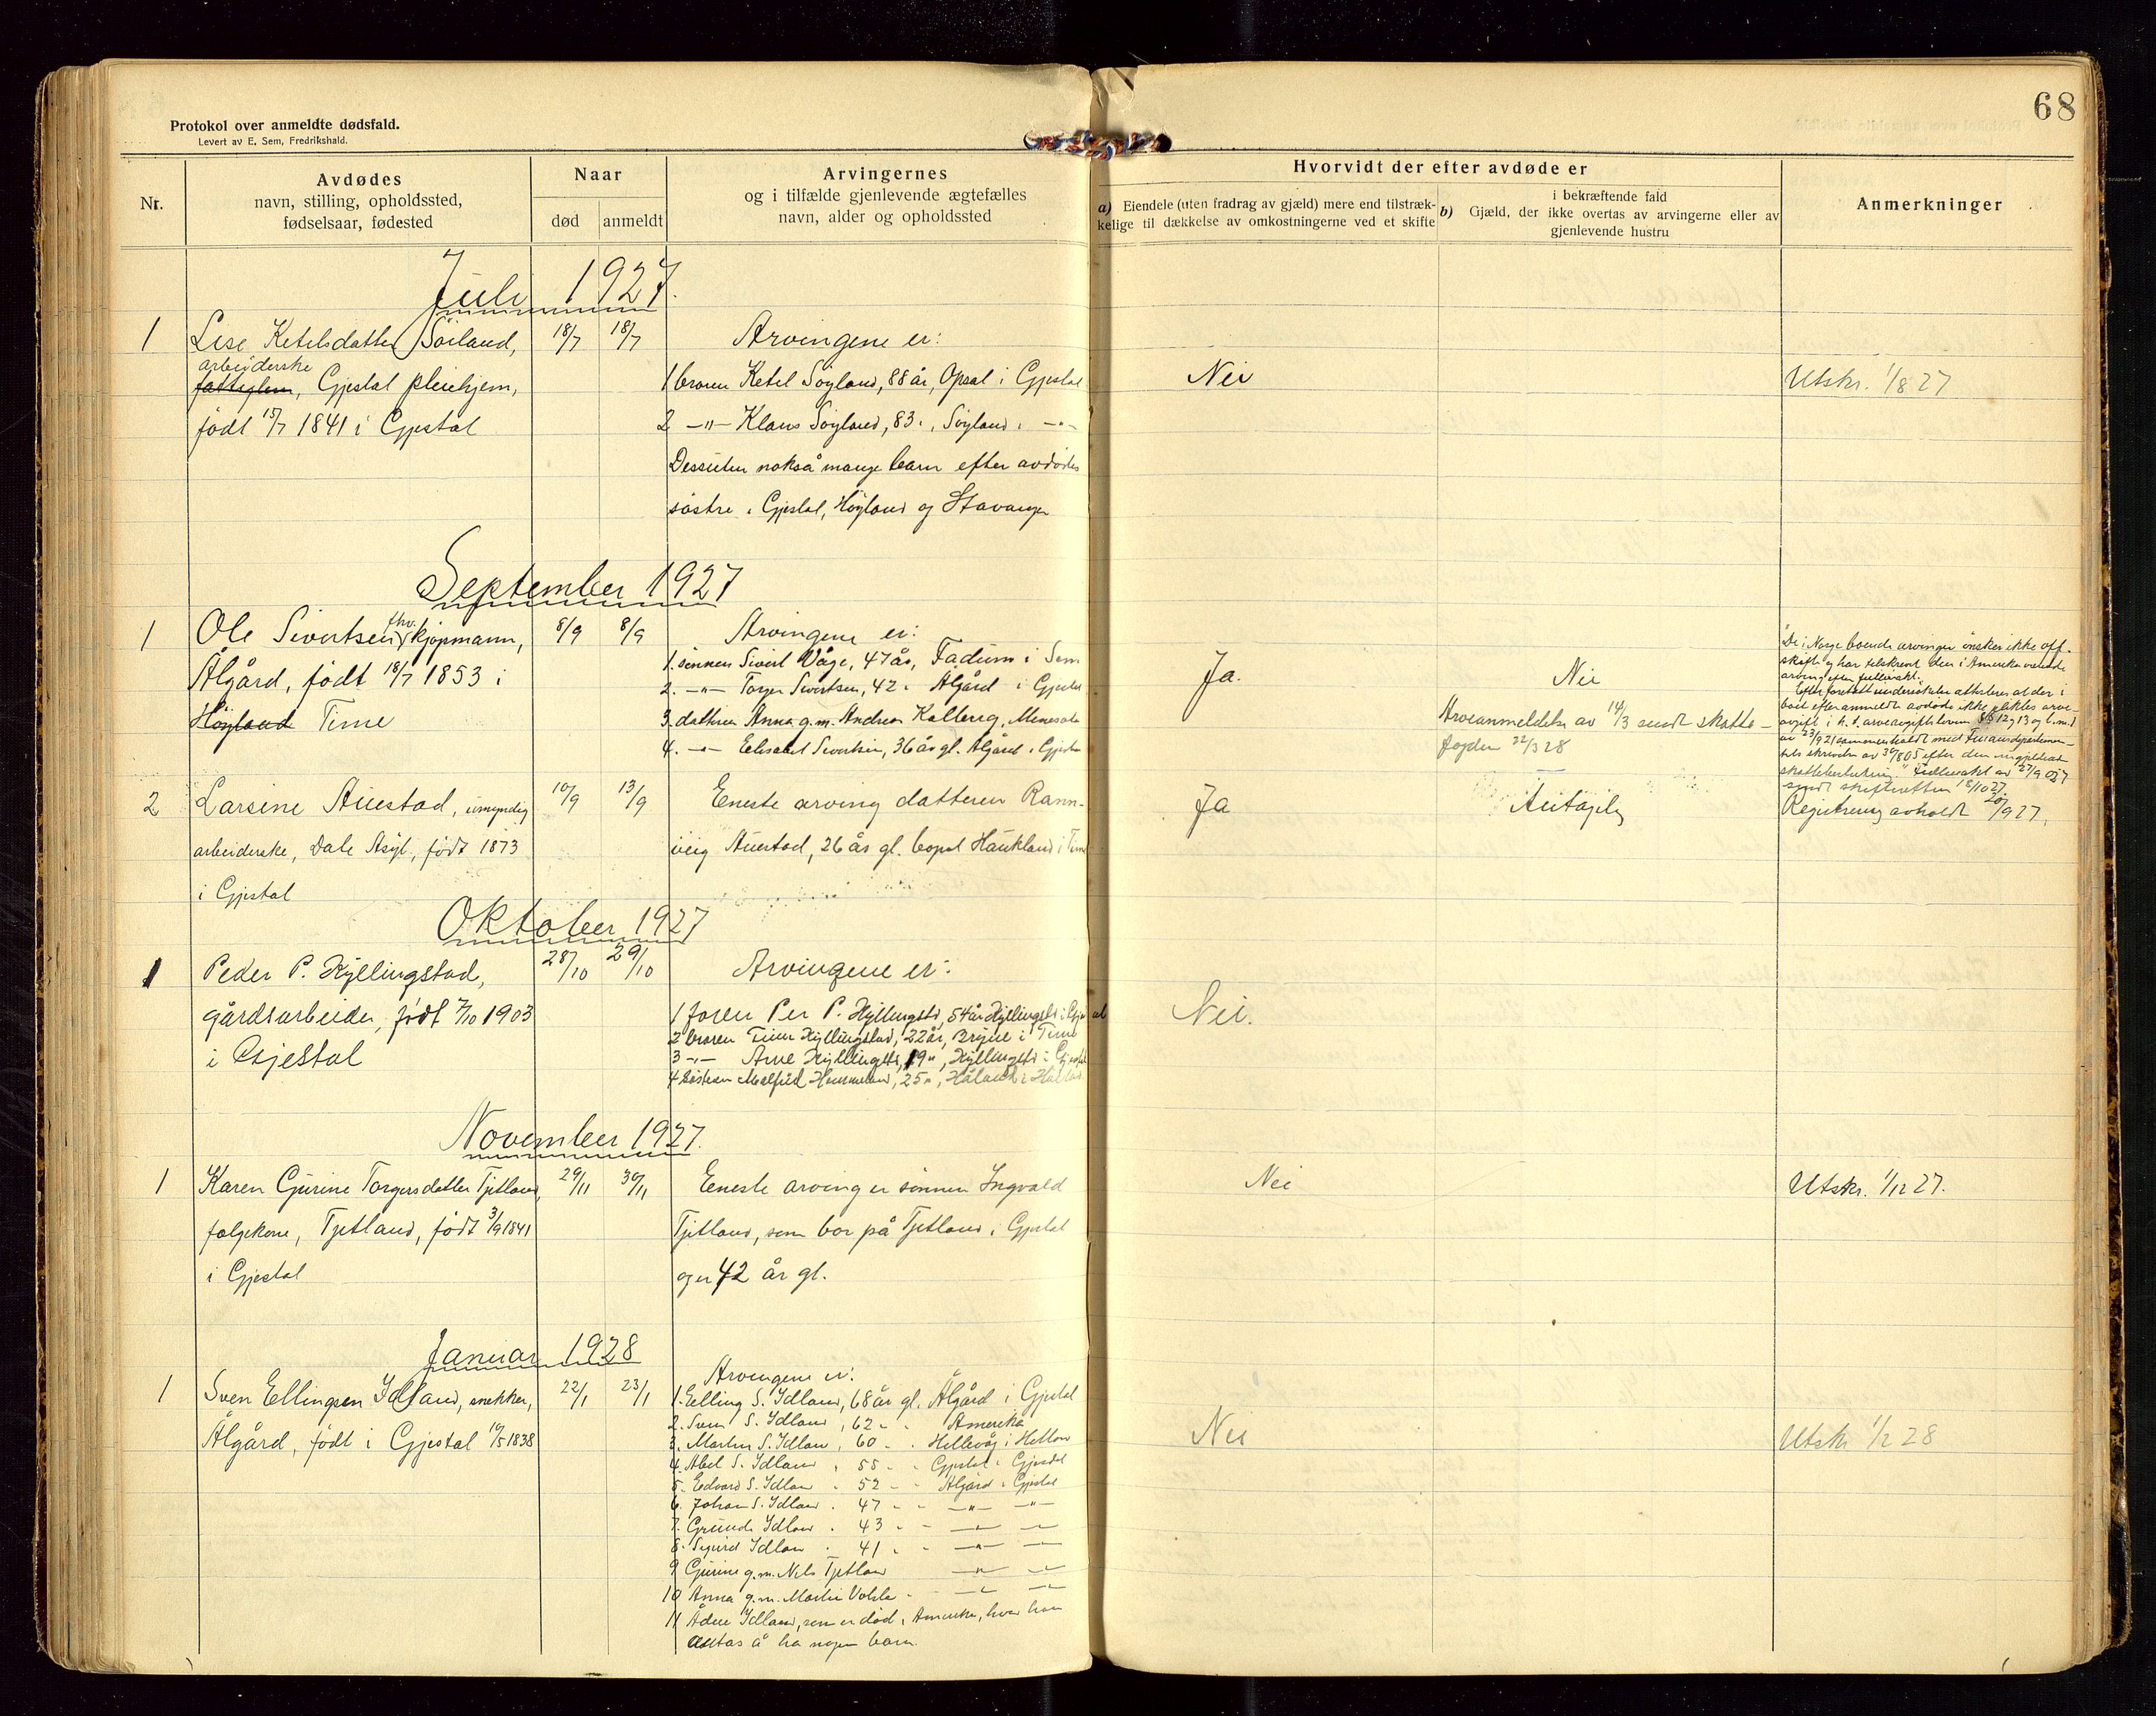 68
Protokol over anmeldte dødsfald.
Levert av E. Sem, Fredrikshald.
Nr.
Avdødes
navn, stilling, opholdssted,
fødselsaar, fødested
Naar
død
anmeldt
Arvingernes
og i tilfælde gjenlevende ægtefælles
navn, alder og opholdssted
Hvorvidt der efter avdøde er
a) Eiendele (uten fradrag av gjæld) mere end tilstræk-
kelige til dækkelse av omkostningerne ved et skifte
i bekræftende fald
b) Gjæld, der ikke overtas av arvingerne eller av
gjenlevende hustru
Anmerkninger
Juli 1927.
1 Lise Ketelsdatter Söiland, 18/7 18/7 Arvingene er:
arbeiderske
Gjestal pleiehjem, 1 broren Ketel Söyland, 88 år, Opsal i Gjestal Nei Utskr. 1/8 27
født 15/7 1841 i Gjestal 2 -"- Klaus Söyland, 83 " , Söyland " -"-
Dessuten nokså mange barn efter avdødes
søstre i Gjestal, Höyland og Stavanger
September 1927
fhv.
1 Ole Sivertsen kjøpmann, 8/9 8/9 Arvingene er:
Ålgård, født 18/7 1853 i
Höyland Time
1. sönnen Sivert Våge, 47 år, Fadum i Sem
2. -"- Torger Sivertsen, 42 " Ålgård i Gjestal
3. datteren Anna g.m. Andrew Kalberg, Minesota
4. -"- Elisabet Sivertsen, 36 år gl. Ålgård i Gjestal
Ja. Nei
Arveanmeldelse av 14/3 sendt skatte-
fogden 22/3 28
"De i Norge boende arvinger ønsker ikke off.
skifte og har tilskrevet den i Amerika værende
arving efter fullmakt.
Registrering avholdt 20/9 27.
2 Larsine Auestad, umyndig 10/9 13/9 Eneste arving datteren Rann-
arbeiderske, Dale Asyl, født 1873 veig Auestad, 26 år gl. bopel Haukland i Time
i Gjestal
Ja Antagelig
Oktober 1927
1 Peder P. Kyllingstad, 28/10 29/10 Arvingene er:
gårdsarbeider, født 7/10 1903
i Gjestal
1 faren Per P. Kyllingstd, 54 år Kyllingstd i Gjestal Nei.
2 broren Timan Kyllingstad, 22 år, Bryne i Time
3 -"- Arne Kyllingstd, 19 " , Kyllingstd i Gjestal
4 søsteren Malfrid Hommeland, 25 " , Håland i Håland
November 1927.
1 Karen Gurine Torgersdatter Tjetland, 29/11 30/11 Eneste arving er sönnen Ingvald Nei Utskr. 1/12 27.
folgekone, Tjetland, født 3/9 1841 Tjetland, som bor på Tjetland i Gjestal
i Gjestal og er 42 år gl.
Januar 1928
1 Sven Ellingsen Idland, snekker, 22/1 23/1 Arvingene er:
Ålgård, født i Gjestal 10/5 1838
1. Elling S. Idland, 68 år gl. Ålgård i Gjestal
2. Sven S. Idland, 62 " " Amerika
3. Martin S. Idland, 60 " " Hellevåg i Hetland
4. Abel S. Idland, 55 " " Gjestal i Gjesdal
5. Edvard S. Idland " 52 " " Ålgård i Gjestal
6. Johan S. Idland " 47 " " -"- -"-
7. Grunde Idland " 43 " " -"- -"-
8. Sigurd Idland " 41 " " -"- -"-
9 Gurine g.m. Nils Tjetland -"- -"-
10 Anna g.m. Martin -"- -"-
11 Ådne Idland, som er død i Amerika, hvor han
antas å ha nogen barn.
Nei Utskr 1/2 28